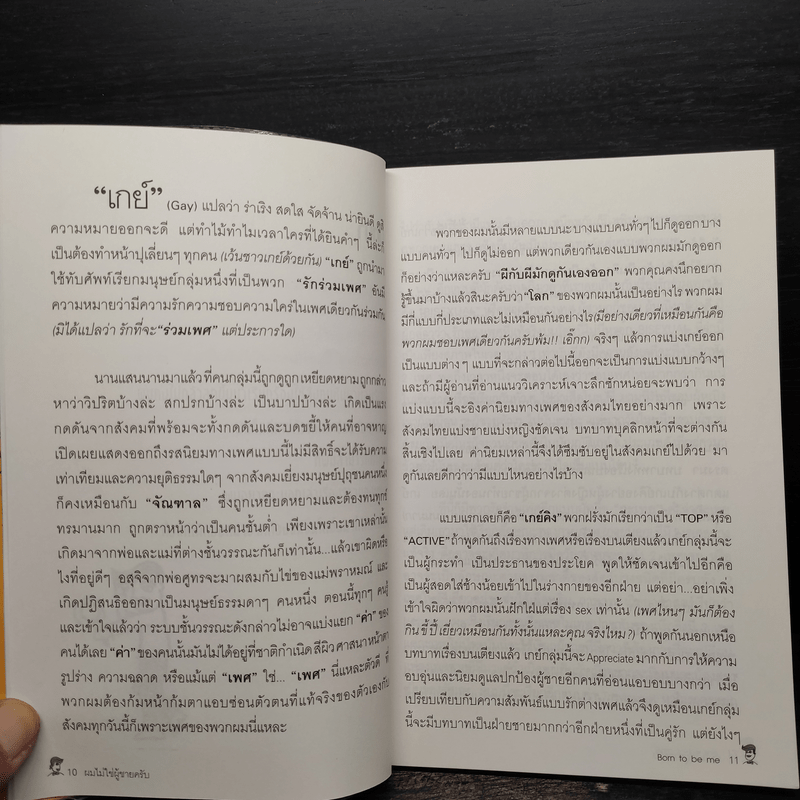 “เกย์” (Gay) แปลว่า ร่าเริง สดใส จัดจ้าน น่ายินดี ดูสิ
ความหมายออกจะดี แต่ทำไม้ทำไมเวลาใครที่ได้ยินคำๆ นี้ล่ะก็
เป็นต้องทำหน้าปุเลี่ยนๆ ทุกคน (เว้นชาวเกย์ด้วยกัน) “เกย์” ถูกนำมา
ใช้ทับศัพท์เรียกมนุษย์กลุ่มหนึ่งที่เป็นพวก “รักร่วมเพศ” อันมี
ความหมายว่ามีความรักความชอบความใคร่ในเพศเดียวกันร่วมกัน
(มิได้แปลว่า รักที่จะ“ร่วมเพศ” แต่ประการใด)
นานแสนนานมาแล้วที่คนกลุ่มนี้ถูกดูถูกเหยียดหยามถูกกล่าว
หาว่าวิปริตบ้างล่ะ สกปรกบ้างล่ะ เป็นบาปบ้างล่ะ เกิดเป็นแรง
กดดันจากสังคมที่พร้อมจะทั้งกดดันและบดขยี้ให้คนที่อาจหาญ
เปิดเผยแสดงออกถึงรสนิยมทางเพศแบบนี้ไม่มีสิทธิ์จะได้รับความ
เท่าเทียมและความยุติธรรมใดๆ จากสังคมเยี่ยงมนุษย์ปุถุชนคนหนึ่ง
ก็คงเหมือนกับ “จัณฑาล” ซึ่งถูกเหยียดหยามและต้องทนทุกข์
ทรมานมาก ถูกตราหน้าว่าเป็นคนชั้นต่ำ เพียงเพราะเขาเหล่านั้น
เกิดมาจากพ่อและแม่ที่ต่างชั้นวรรณะกันก็เท่านั้น...แล้วเขาผิดหรือ
ไงที่อยู่ดีๆ อสุจิจากพ่อศูทรจะมาผสมกับไข่ของแม่พราหมณ์ และ
เกิดปฏิสนธิออกมาเป็นมนุษย์ธรรมดาๆ คนหนึ่ง ตอนนี้ทุกๆ คนรู้
และเข้าใจแล้วว่า ระบบชั้นวรรณะดังกล่าวไม่อาจแบ่งแยก “ค่า” ของ
คนได้เลย “ค่า” ของคนนั้นมันไม่ได้อยู่ที่ชาติกำเนิด สีผิว ศาสนา หน้าตา
รูปร่าง ความฉลาด หรือแม้แต่ “เพศ” ใช่... “เพศ” นี่แหละตัวดี ที่
พวกผมต้องก้มหน้าก้มตาแอบซ่อนตัวตนที่แท้จริงของตัวเองกับ
สังคมทุกวันนี้ก็เพราะเพศของพวกผมนี่แหละ
10 ผมไม่ใช่ผู้ชายครับ
พวกของผมนั้นมีหลายแบบนะ บางแบบคนทั่วๆ ไปก็ดูออก บาง
แบบคนทั่วๆ ไปก็ดูไม่ออก แต่พวกเดียวกันเองแบบพวกผมมักดูออก
ก็อย่างว่าแหละครับ “ผีกับผีมักดูกันเองออก” พวกคุณคงนึกอยาก
รู้ขึ้นมาบ้างแล้วสินะครับว่า “โลก” ของพวกผมนั้นเป็นอย่างไร พวกผม
มีกี่แบบกี่ประเภทและไม่เหมือนกันอย่างไร(มีอย่างเดียวที่เหมือนกันคือ
พวกผมชอบเพศเดียวกันครับพ้ม!! เอิ๊กก) จริงๆ แล้วการแบ่งเกย์ออก
เป็นแบบต่างๆ แบบที่จะกล่าวต่อไปนี้ออกจะเป็นการแบ่งแบบกว้างๆ
และถ้ามีผู้อ่านที่อ่านแนววิเคราะห์เจาะลึกซักหน่อยจะพบว่า การ
แบ่งแบบนี้จะอิงค่านิยมทางเพศของสังคมไทยอย่างมาก เพราะ
สังคมไทยแบ่งชายแบ่งหญิงชัดเจน บทบาทบุคลิกหน้าที่จะต่างกัน
สิ้นเชิงไปเลย ค่านิยมเหล่านี้จึงได้ซึมซับอยู่ในสังคมเกย์ไปด้วย มา
ดูกันเลยดีกว่าว่ามีแบบไหนอย่างไรบ้าง
แบบแรกเลยก็คือ “เกย์คิง” พวกฝรั่งมักเรียกว่าเป็น “TOP” หรือ
“ACTIVE” ถ้าพูดกันถึงเรื่องทางเพศหรือเรื่องบนเตียงแล้วเกย์กลุ่มนี้จะ
เป็นผู้กระทำ เป็นประธานของประโยค พูดให้ชัดเจนเข้าไปอีกคือ
เป็นผู้สอดใส่ช้างน้อยเข้าไปในร่างกายของอีกฝ่าย แต่อย่า...อย่าเพิ่ง
เข้าใจผิดว่าพวกผมนั้นฝักใฝ่แต่เรื่อง sex เท่านั้น (เพศไหนๆ มันก็ต้อง
กิน ขี้ ปี้ เยี่ยวเหมือนกันทั้งนั้นแหละคุณ จริงไหม?) ถ้าพูดกันนอกเหนือ
บทบาทเรื่องบนเตียงแล้ว เกย์กลุ่มนี้จะ Appreciate มากกับการให้ความ
อบอุ่นและนิยมดูแลปกป้องผู้ชายอีกคนที่อ่อนแอบอบบางกว่า เมื่อ
เปรียบเทียบกับความสัมพันธ์แบบรักต่างเพศแล้วจึงดูเหมือนเกย์กลุ่ม
นี้จะมีบทบาทเป็นฝ่ายชายมากกว่าอีกฝ่ายหนึ่งที่เป็นคู่รัก แต่ยังไงๆ
Born to be me 11